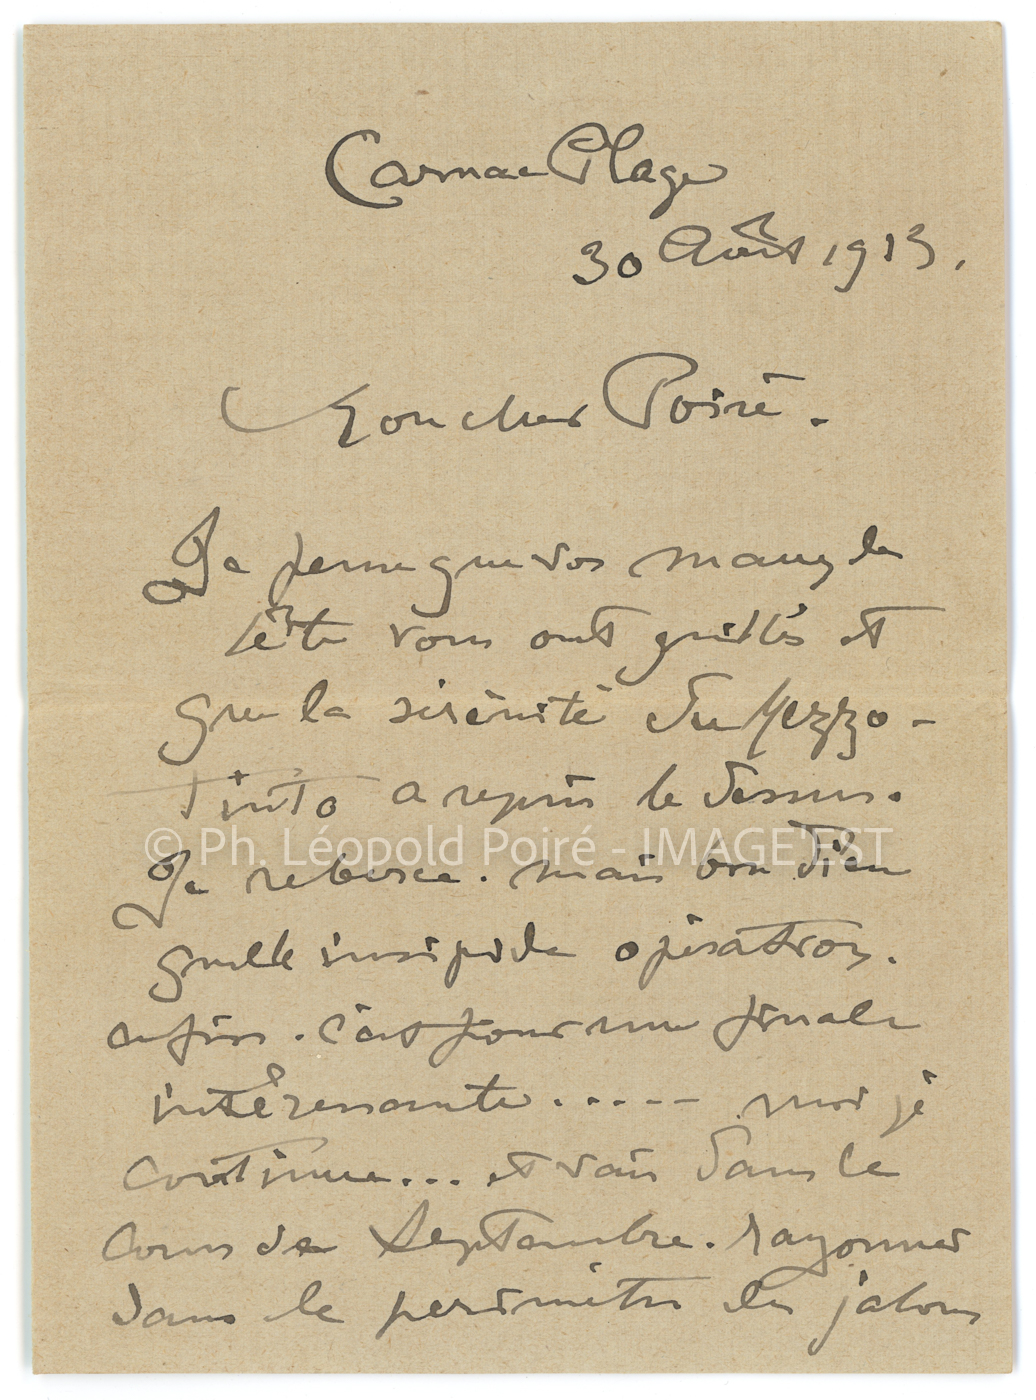 Carnac Plage
30 Août 1913.
Mon cher Poiré.
Je pense que vos maux de
tête vous ont quittés et
que la sérénité du Mezzo-
tinto a repris le dessus.
© Ph. Léopold Poiré - IMAGE'EST
Je reberce. mais bon Dieu
quelle insipide opération.
enfin. c'est pour une finale
intéressante..... moi je
continue... et vais dans le
cours de Septembre. rayonner
dans le périmètre des jalons